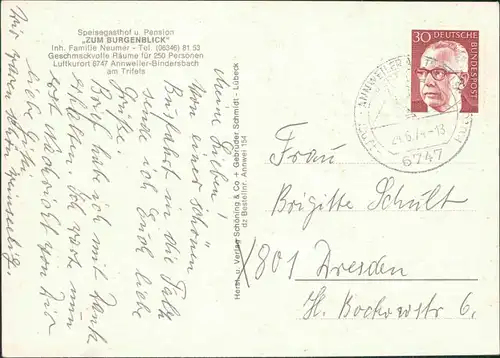 Speisegasthof u. Pension
"ZUM BURGENBLICK"
Inh. Familie Neumer - Tel. (06346) 81 53
Geschmackvolle Räume für 250 Personen
Luftkurort 6747 Annweiler-Bindersbach
am Trifels
Meine Lieben!
Von einer schönen
Busfahrt in die Pfalz
sende ich Euch liebe
Grüße.
Brief habe ich mit Dank
erhalten. Ich warte nun
erst Nachricht von Dir
liebe Gitti
Wir waren schon
Herst. u. Verlag Schöning & Co + Gebrüder Schmidt - Lübeck
dz Bestellnr. Annwei 154
30
DEUTSCHE
BUNDESPOST
ANNWEILER AM TRIFELS
24.6.74-13
6747
Frau
Brigitte Schult
801 Dresden
6.